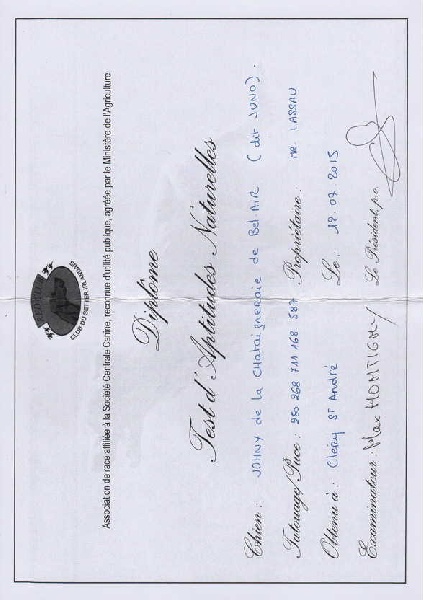 CLUB DU SETTER IRLANDAIS
Association de race affiliée à la Société Centrale Canine, reconnue d'utilité publique, agréée par le Ministère de l'Agriculture
Diplôme
Test d'Aptitudes Naturelles
Chien : JOHNY de la Chataigneraie de Bel-AIR (dit JUNO).
Tatouage/Puce : 250 268 711 168 587 Propriétaire : MR LASSAU
Obtenu à : Cléry St André Le : 12 07 2015
Examinateur : Max MONTIGNY Le Président, p.o.